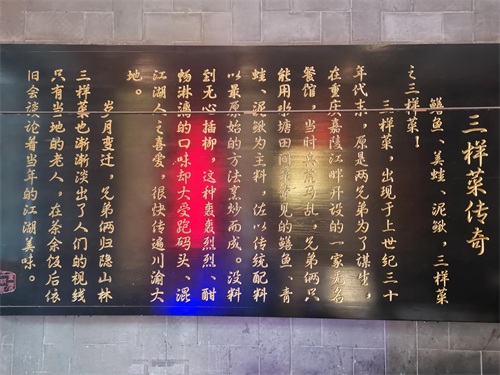 三样菜传奇
鳝鱼、美蛙、泥鳅,三样菜
之三样菜!
三样菜,出现于上世纪三十
年代末,原是两兄弟为了谋生,
在重庆嘉陵江畔开设的一家无名
餐馆,当时兵荒马乱,兄弟俩只
能用水塘田间常见的鳝鱼、青
蛙、泥鳅为主料,佐以传统配料
以最原始的方法烹炒而成。没料
到无心插柳,这种轰轰烈烈、酣
畅淋漓的口味却大受跑码头、混
江湖人之喜爱,很快传遍川渝大
地。
岁月变迁,兄弟俩归隐山林
三样菜也渐渐淡出了人们的视线
只有当地的老人,在茶余饭后依
旧会谈论着当年的江湖美味。